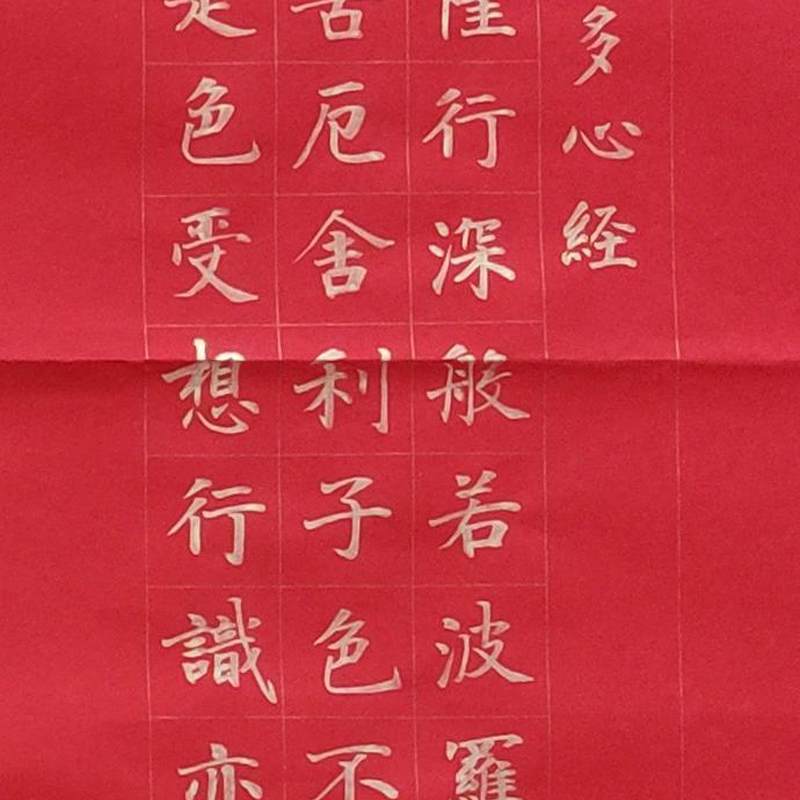 多心経
行深般若波羅
苦厄舎利子色不
是色受想行識亦